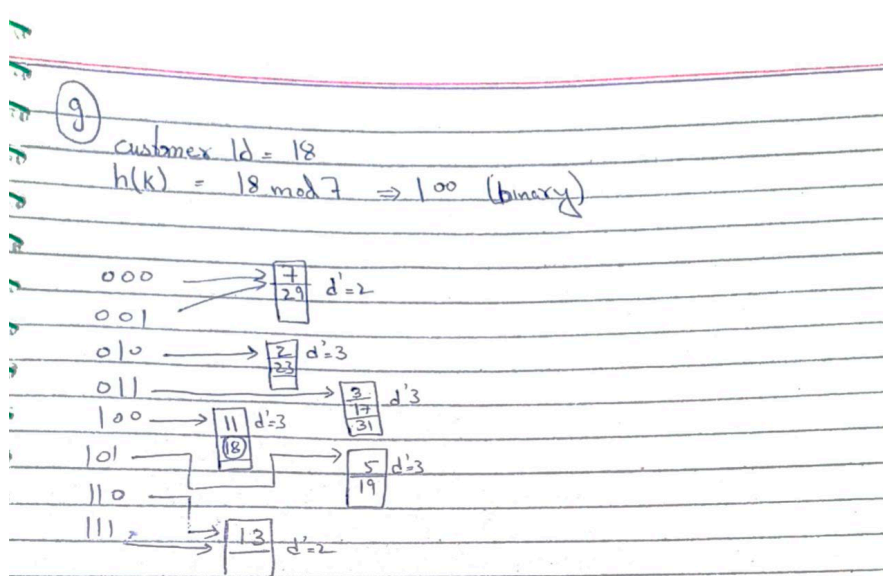 g
customer Id = 18
h(k) = 18 mod 7 ⇒ 100 (binary)
000
7
29
d'=2
001
010
2
23
d'=3
011
3
17
31
d'3
100
11
18
d'=3
101
5
19
d'=3
110
111
13
d'=2